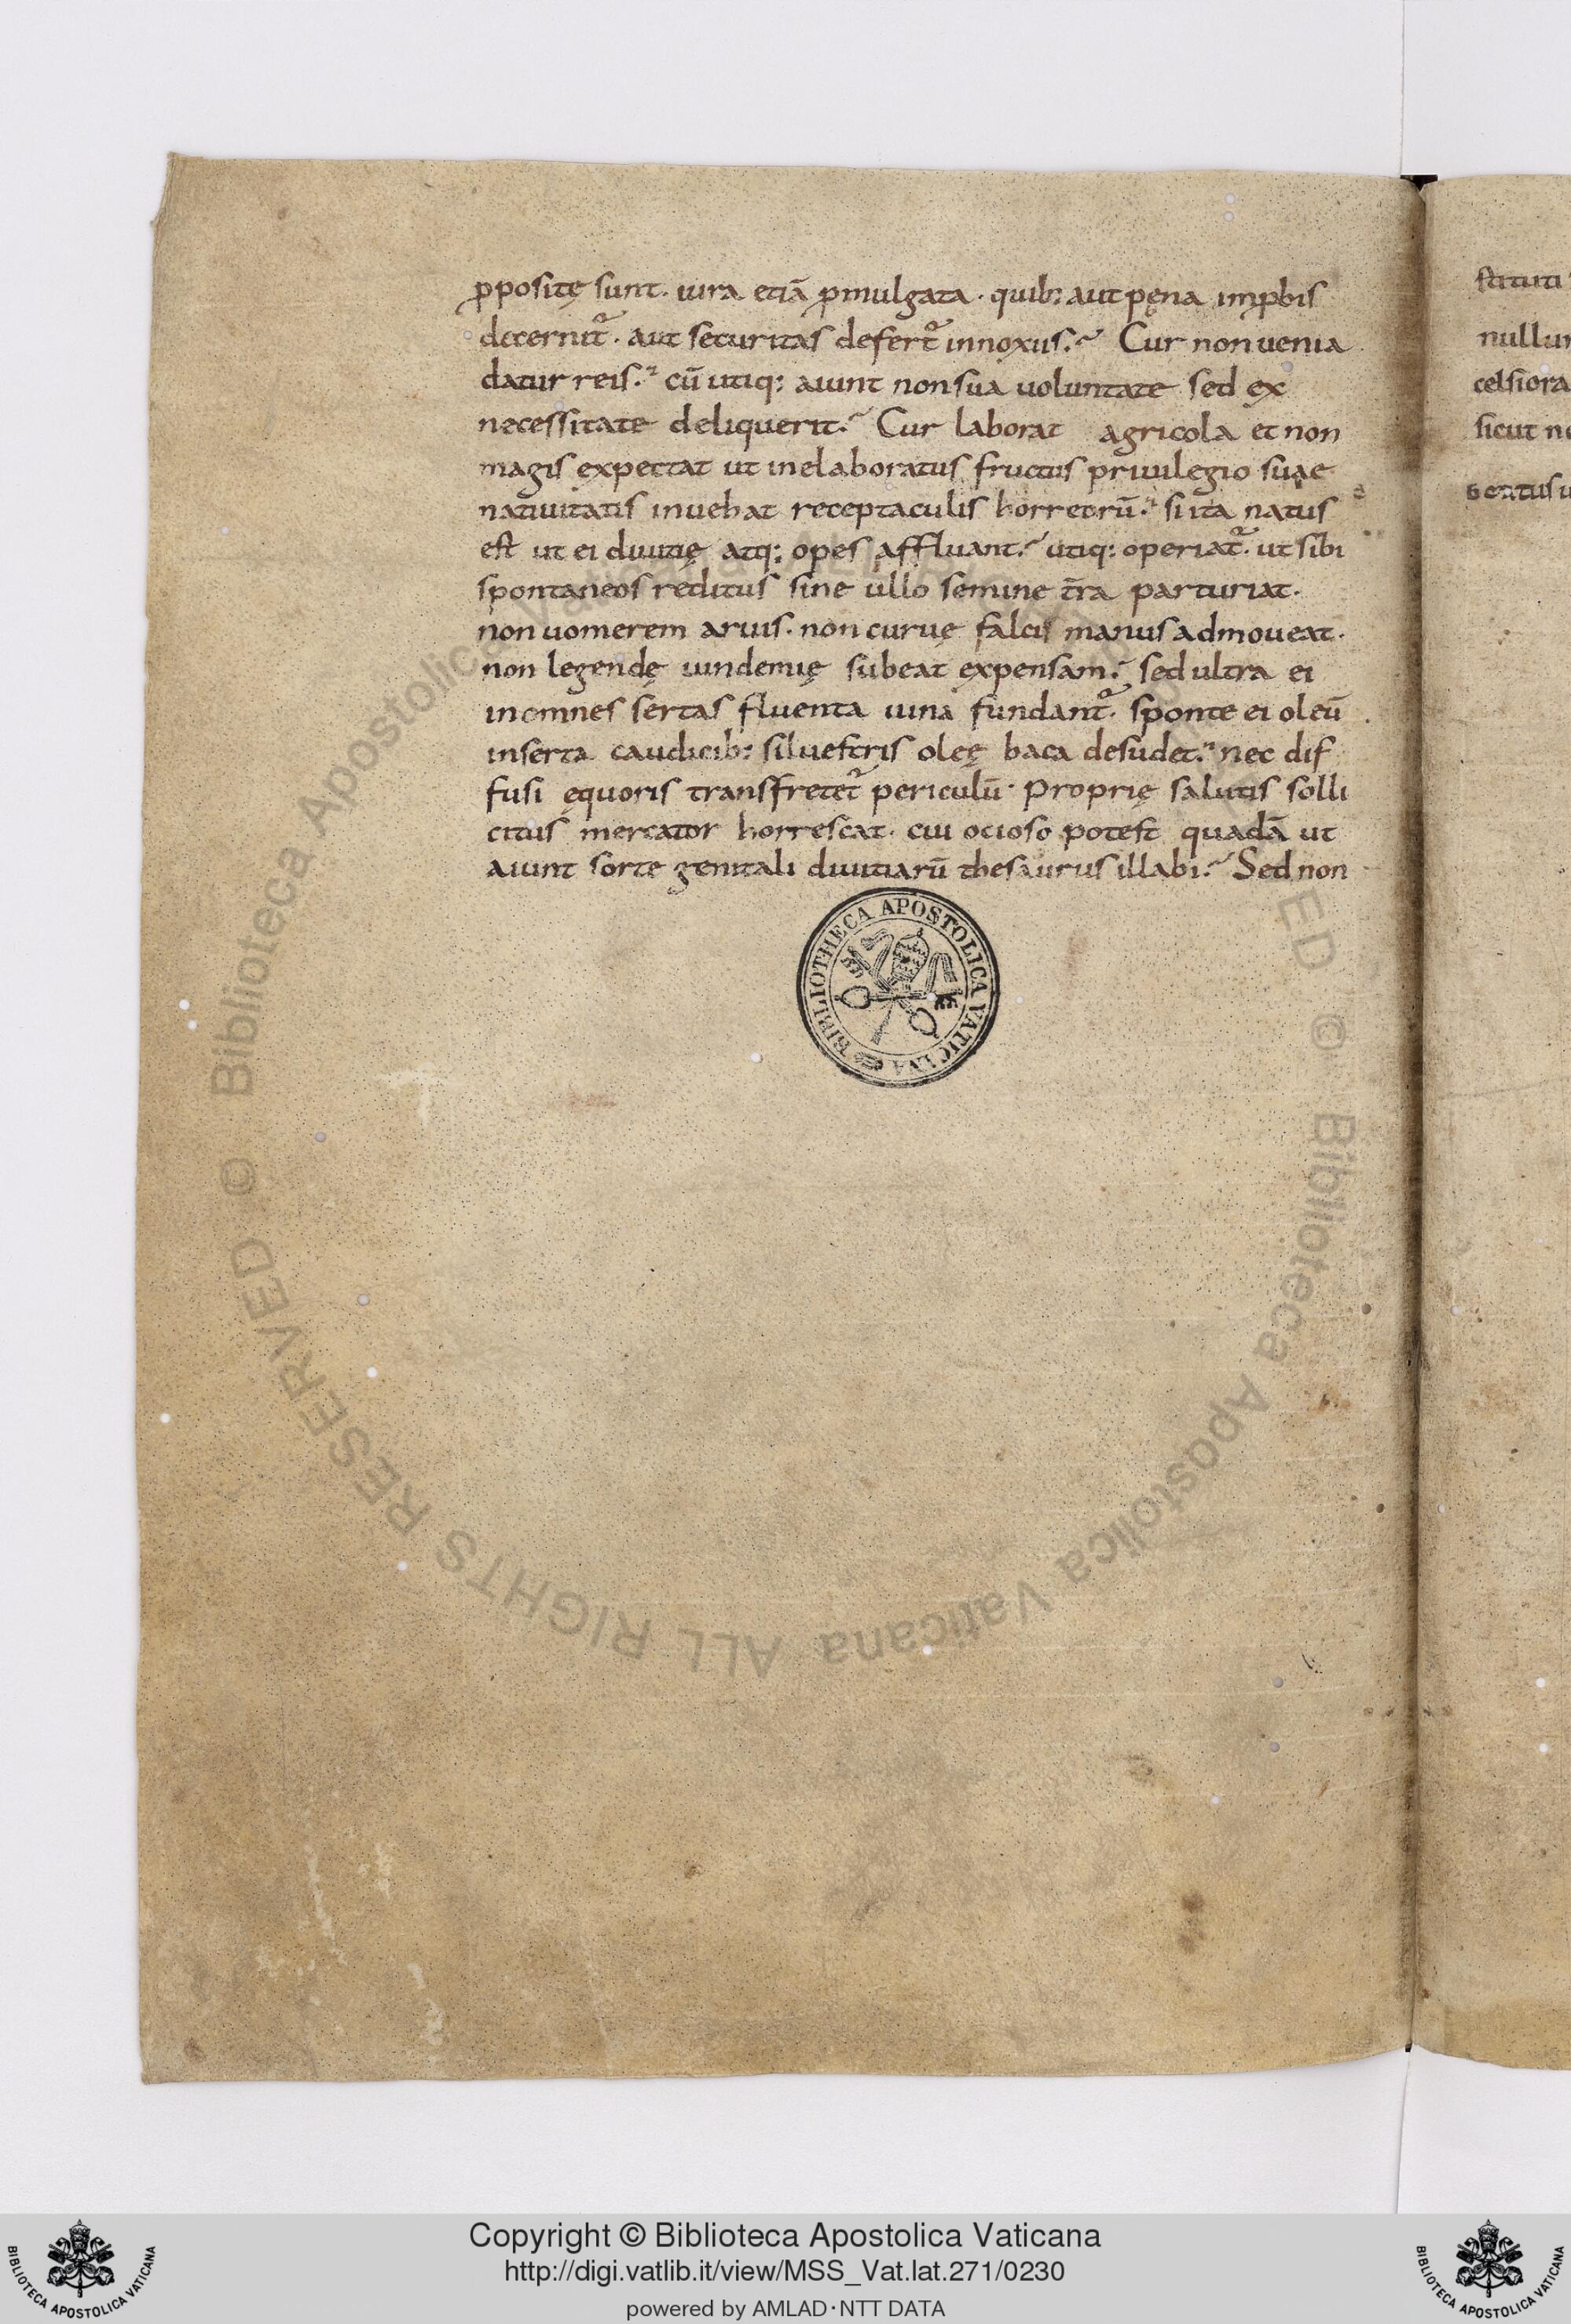 ꝓpositę sunt· iura etiā ꝓmulgata· quib; aut pęna imꝓbis
decernit᷑· aut securitas defert᷑ innoxiis? Cur non uenia
datur reis? cū utiq; aiunt non sua uoluntate sed ex
necessitate deliquerit? Cur laborat agricola et non
magis expectat ut inelaboratus fructus priuilegio suae
natiuitatis inuehat receptaculis horreorū? si ita natus
est ut ei diuitię atq; opes affluant? utiq; operiat᷑· ut sibi
spontaneos reditus sine ullo semine t̄ra parturiat·
non uomerem aruis· non curuę falcis manus admoueat·
non legendę uindemię subeat expensam? sed ultra ei
in omnes sertas fluenta uina fundant᷑· sponte ei oleū
inserta caudicib; siluestris oleę baca desudet? nec dif
fusi ęquoris transfretet᷑ periculū· Proprię salutis solli
citus mercator horrescat· cui ocioso potest quadā ut
aiunt sorte genitali diuitiarū thesaurus illabi? Sed non
BIBLIOTHECA APOSTOLICA VATICANA
stituti
nullu
celsiora
sicut n
© Biblioteca Apostolica Vaticana ALL RIGHTS RESERVED © Biblioteca Apostolica Vaticana ALL RIGHTS RESERVED
Copyright © Biblioteca Apostolica Vaticana
http://digi.vatlib.it/view/MSS_Vat.lat.271/0230
powered by AMLAD·NTT DATA
BIBLIOTECA APOSTOLICA VATICANA
BIBLIOTECA APOSTOLICA VATICANA